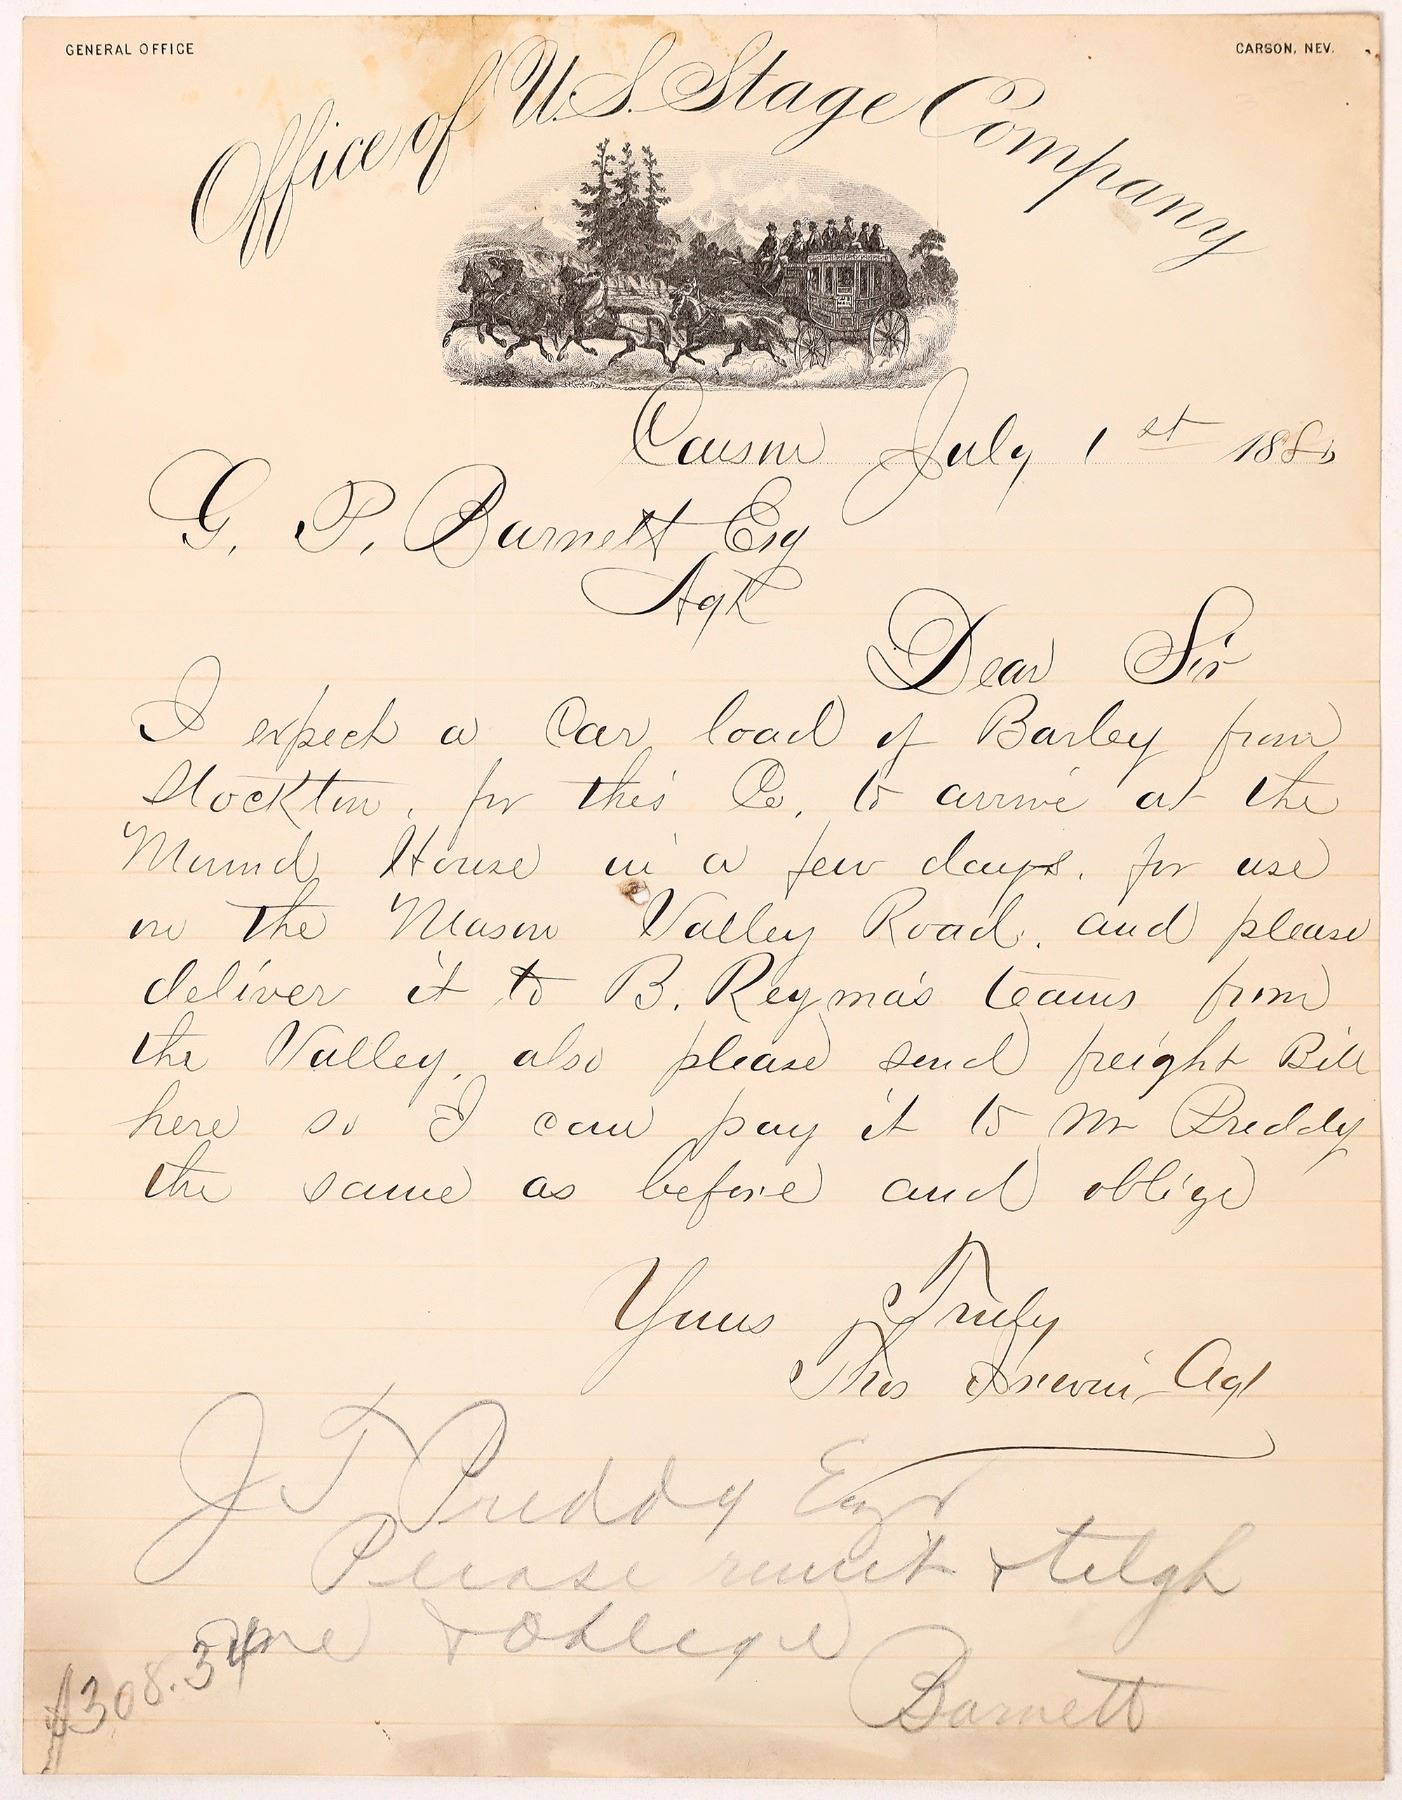 GENERAL OFFICE
CARSON, NEV.
Office of U.S. Stage Company
Carson July 1st 1880
G. P. Barnett Esq
Agt
Dear Sir
I expect a Car load of Barley from
Stockton, for this Co, to arrive at the
Mound House in a few days, for use
on the Mason Valley Road, and please
deliver it to B. Reyma's teams from
the Valley, also please send freight Bill
here so I can pay it to Mr Preddy
the same as before and oblige
Yours Truly
Thos Irwin Agt
J T Preddy Esqr
Please remit & telgh
me & Oblige
$308.34
Barnett